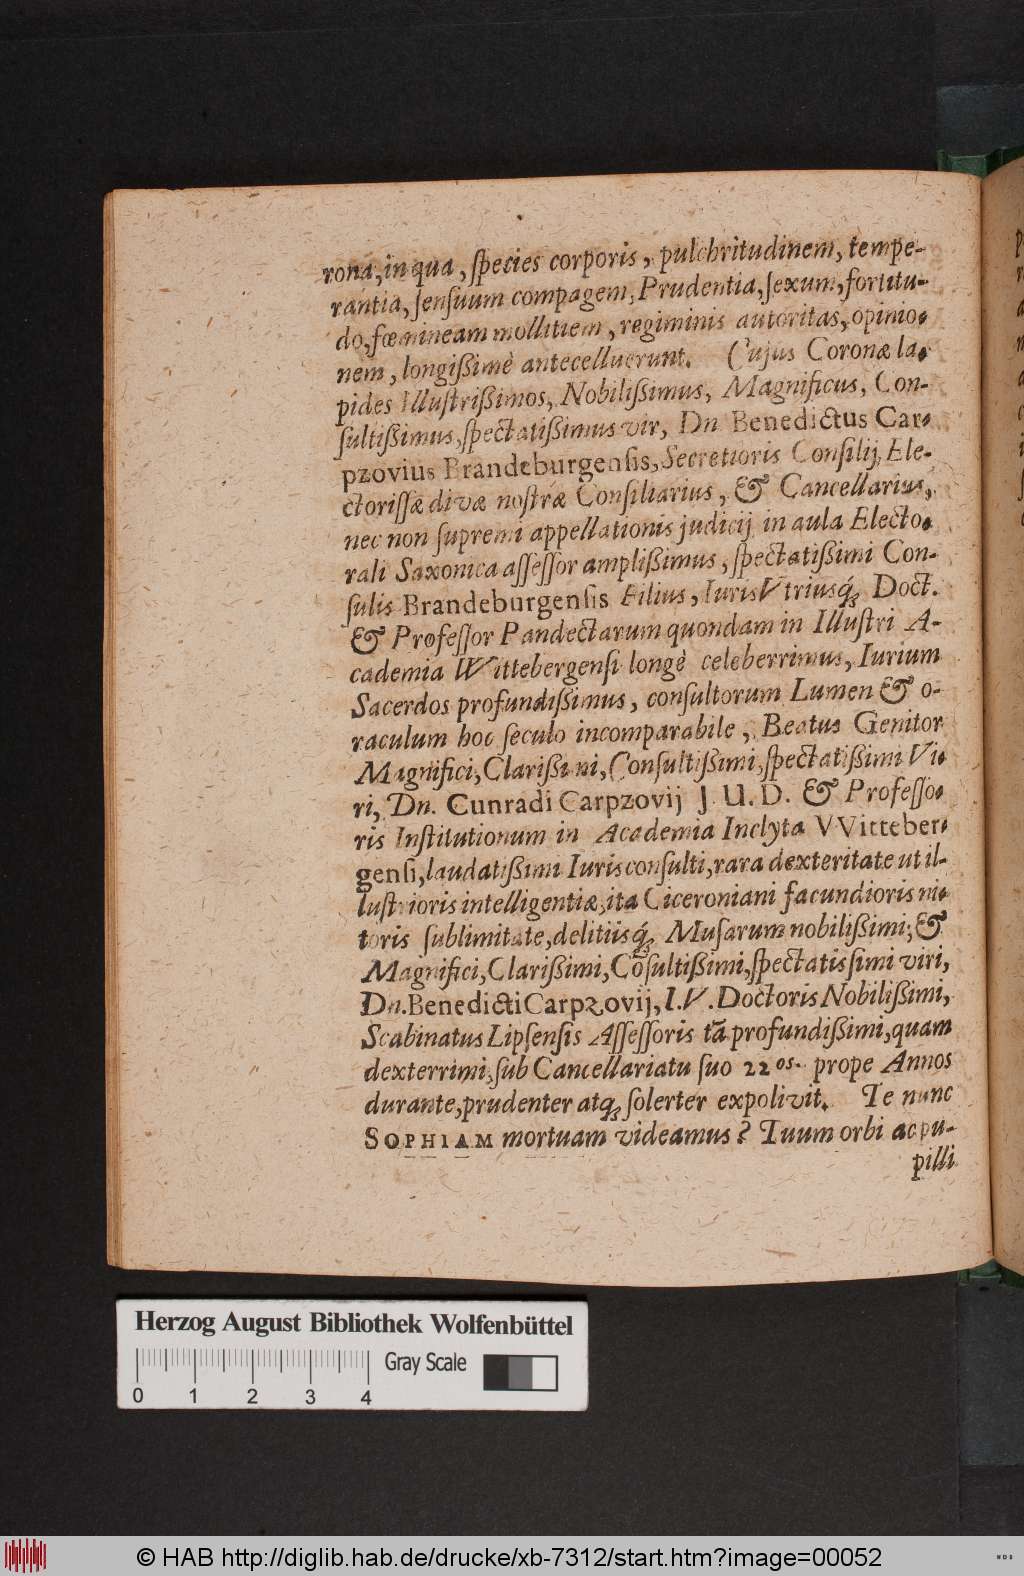 rona, in qua, ſpecies corporis, pulchritudinem, tempe-
rantia, ſenſuum compagem, Prudentia, ſexum, fortitu-
do, fœmineam mollitiem, regiminis autoritas, opinio-
nem, longißimè antecelluerunt. Cujus Coronæ la-
pides Illuſtrißimos, Nobilißimus, Magnificus, Con-
ſultißimus, ſpectatißimus vir, Dn Benedictus Car-
pzovius Brandeburgenſis, Secretioris Conſilij, Ele-
ctoriſſæ divæ noſtræ Conſiliarius, & Cancellarius,
nec non ſupremi appellationis judicij in aula Electo-
rali Saxonica aſſeſſor amplißimus, ſpectatißimi Con-
ſulis Brandeburgenſis Filius, Iuris Vtriusq́; Doct.
& Profeſſor Pandectarum quondam in Illuſtri A-
cademia Wittebergenſi longè celeberrimus, Iurium
Sacerdos profundißimus, conſultorum Lumen & o-
raculum hoc ſeculo incomparabile, Beatus Genitor
Magnifici, Clarißimi, Conſultißimi, ſpectatißimi Vi-
ri, Dn. Cunradi Carpzovij J. U. D. & Profeſſo-
ris Inſtitutionum in Academia Inclyta VVitteber-
genſi, laudatißimi Iurisconſulti, rara dexteritate ut il-
luſtrioris intelligentiæ, ita Ciceroniani facundioris ni-
toris ſublimitate, delitiisq́; Muſarum nobilißimi; &
Magnifici, Clarißimi, Cōſultißimi, ſpectatisſimi viri,
Dn. Benedicti Carpzovij, I. V. Doctoris Nobilißimi,
Scabinatus Lipſenſis Aſſeſſoris tā profundißimi, quam
dexterrimi, ſub Cancellariatu ſuo 22os. prope Annos
durante, prudenter atq; ſolerter expolivit. Te nunc
SOPHIAM mortuam videamus? Tuum orbi ac pu-
pilli
Herzog August Bibliothek Wolfenbüttel
0 1 2 3 4 Gray Scale
© HAB http://diglib.hab.de/drucke/xb-7312/start.htm?image=00052